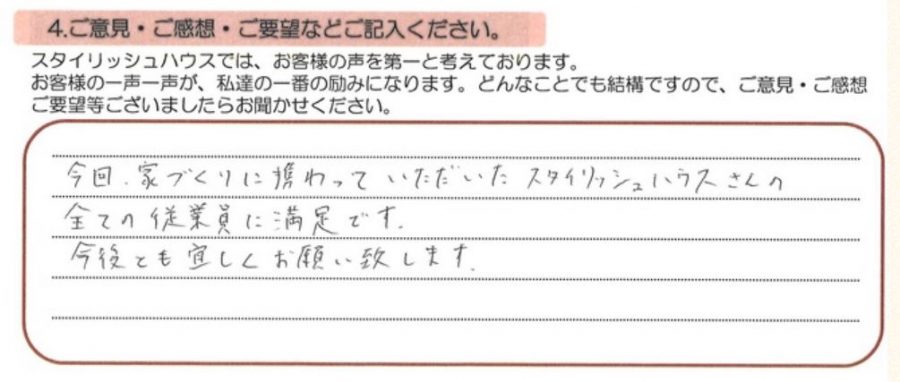 4.ご意見・ご感想・ご要望などご記入ください。
スタイリッシュハウスでは、お客様の声を第一と考えております。
お客様の一声一声が、私達の一番の励みになります。どんなことでも結構ですので、ご意見・ご感想
ご要望等ございましたらお聞かせください。
今回、家づくりに携わって いただいた スタイリッシュハウスさんの
全ての従業員に満足です。
今後とも宜しくお願い致します。